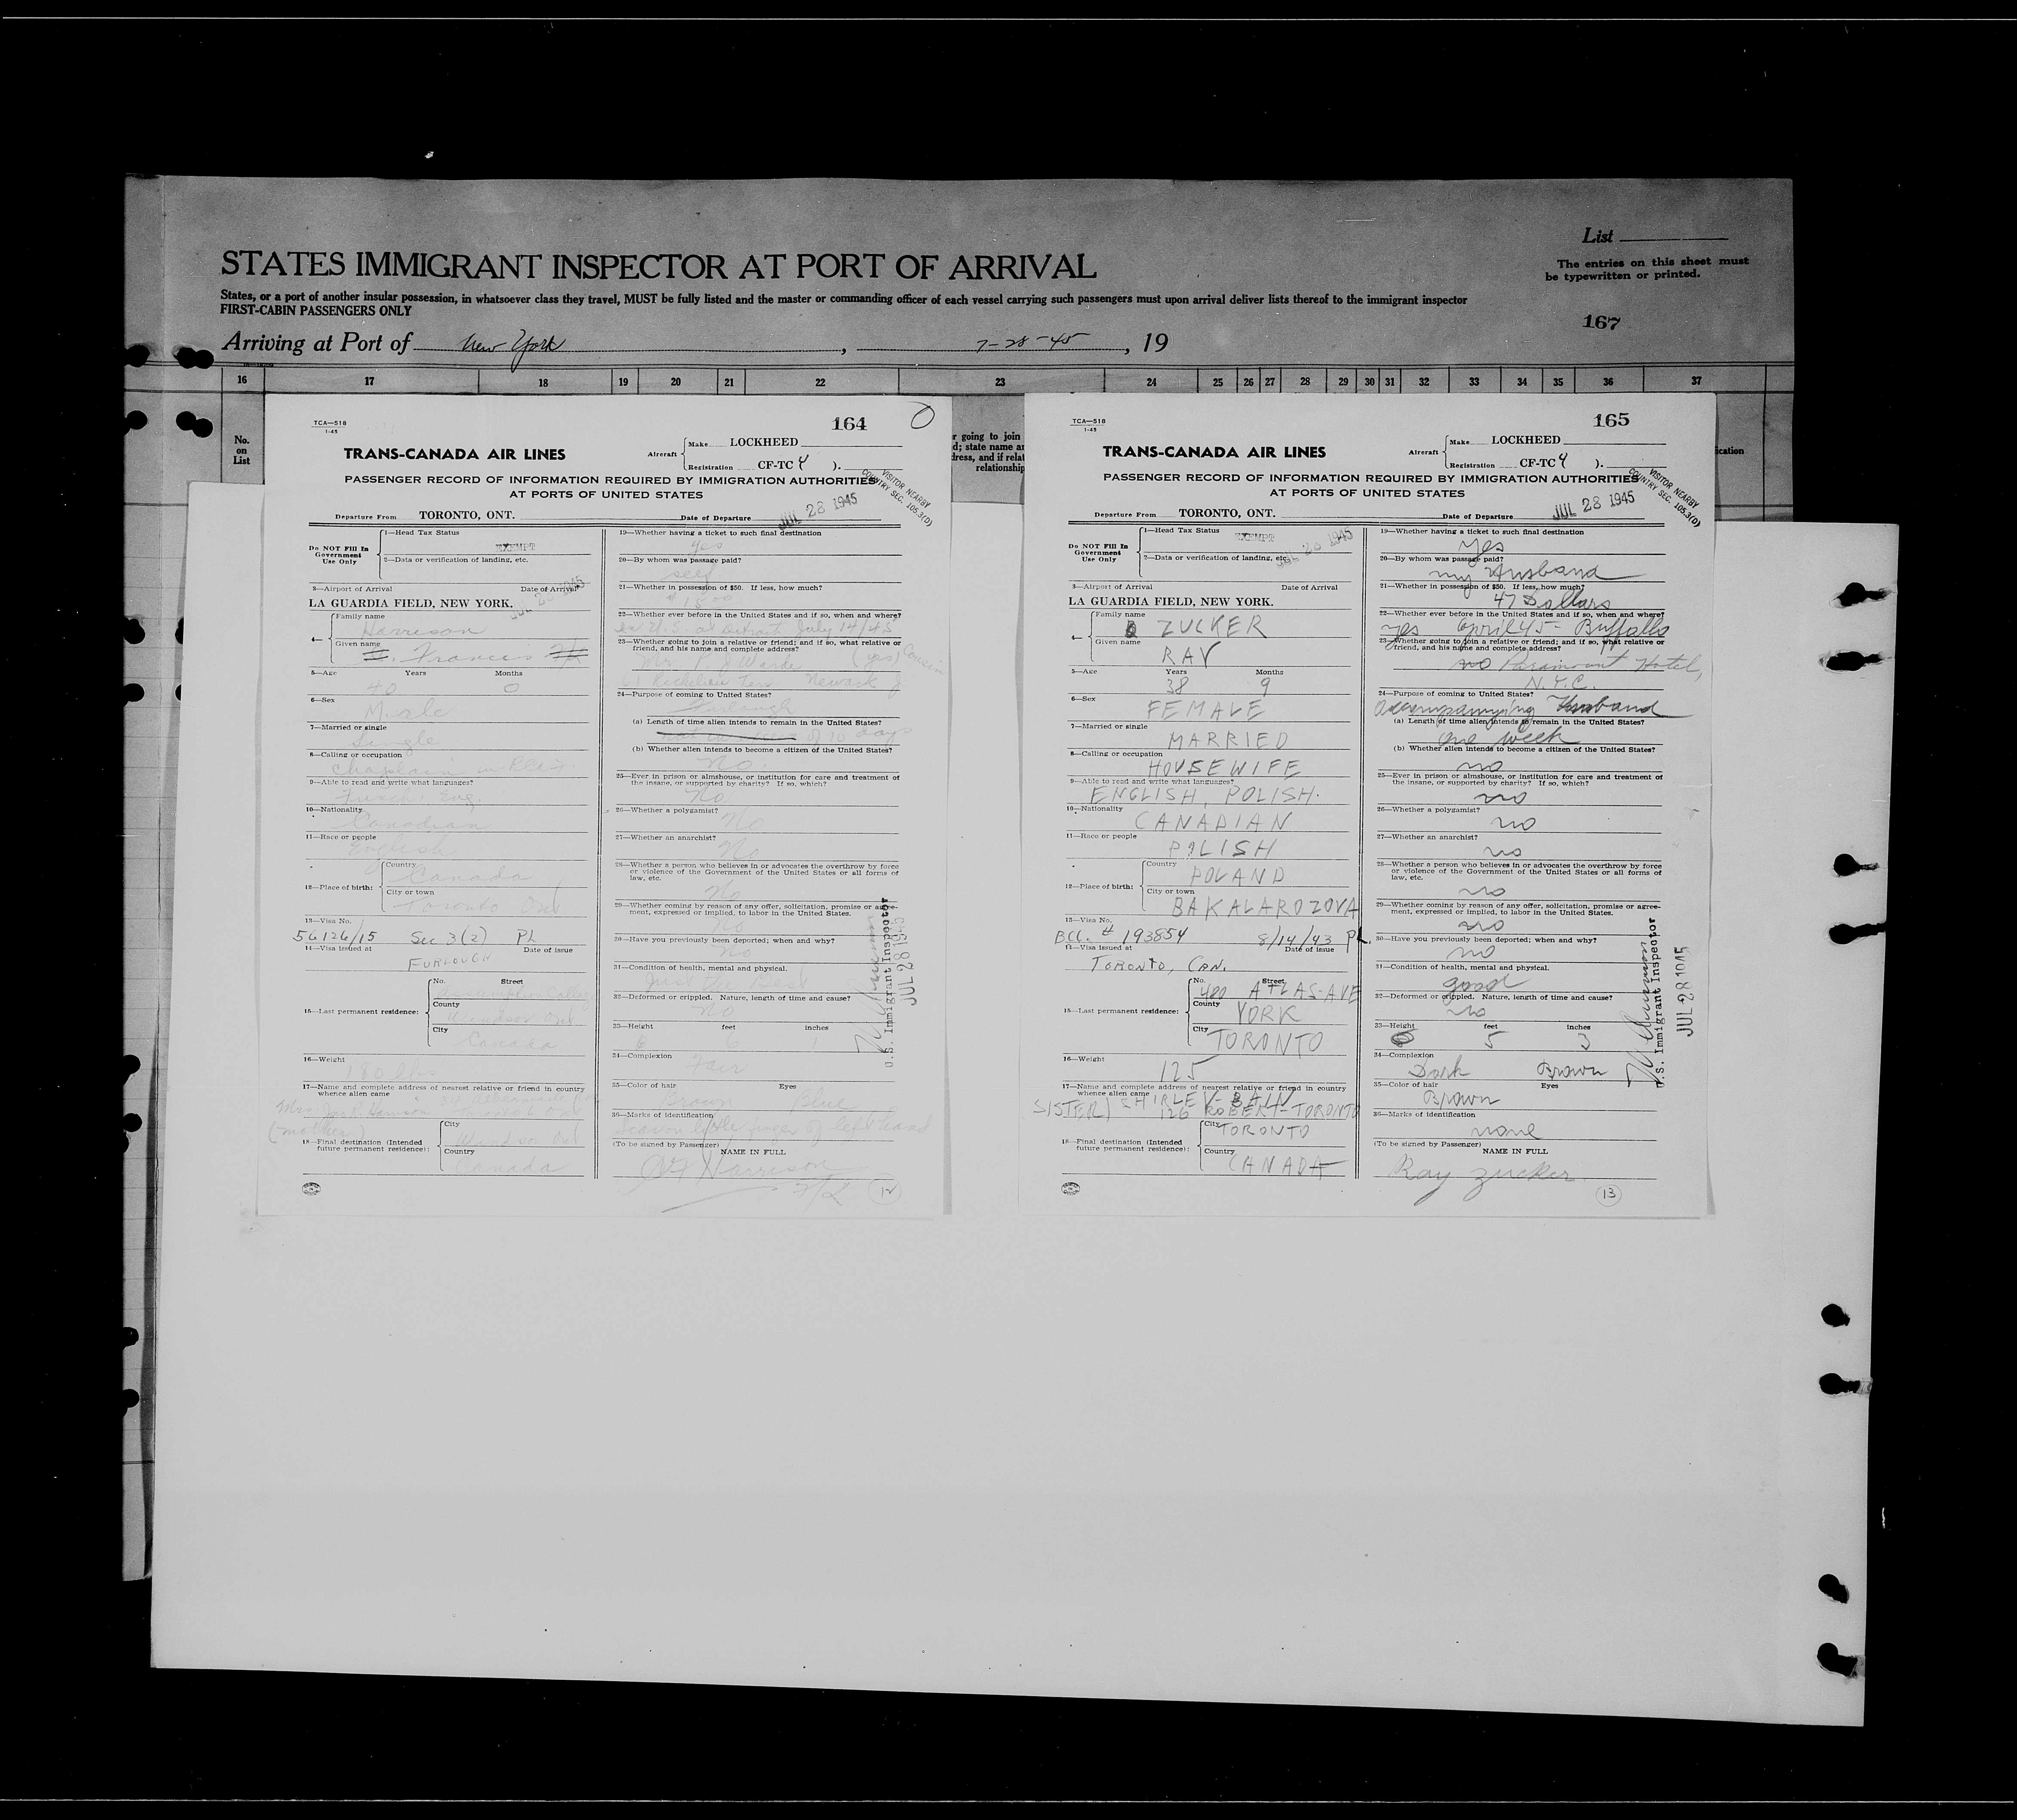 List
STATES IMMIGRANT INSPECTOR AT PORT OF ARRIVAL
The entries on this sheet must
be typewritten or printed.
States, or a port of another insular possession, in whatsoever class they travel, MUST be fully listed and the master or commanding officer of each vessel carrying such passengers must upon arrival deliver lists thereof to the immigrant inspector
FIRST-CABIN PASSENGERS ONLY
167
Arriving at Port of New York, 7-28-45, 19
16 17 18 19 20 21 22 23 24 25 26 27 28 29 30 31 32 33 34 35 36 37
No.
on
List
r going to join
d; state name a
dress, and if relat
relationship
ication
TCA—518
1-45
164
TRANS-CANADA AIR LINES
Aircraft
Make LOCKHEED
Registration CF-TC 4 ).
PASSENGER RECORD OF INFORMATION REQUIRED BY IMMIGRATION AUTHORITIES
AT PORTS OF UNITED STATES
VISITOR NEARBY
COUNTRY SEC. 105.3(D)
Departure From TORONTO, ONT.
Date of Departure JUL 28 1945
Do NOT Fill In
Government
Use Only
1—Head Tax Status
EXEMPT
2—Data or verification of landing, etc.
3—Airport of Arrival Date of Arrival
LA GUARDIA FIELD, NEW YORK. JUL 28 1945
4—
Family name
Harrison
Given name
Francis
5—Age Years Months
40 0
6—Sex
Male
7—Married or single
Single
8—Calling or occupation
Chaplain
9—Able to read and write what languages?
French, Eng.
10—Nationality
Canadian
11—Race or people
English
12—Place of birth:
Country
Canada
City or town
Toronto Ont
13—Visa No.
56126/15 Sec 3(2) PL
14—Visa issued at Date of issue
FURLOUGH
15—Last permanent residence:
No. Street
Assumption College
County
Windsor Ont
City
Canada
16—Weight
180 lbs
17—Name and complete address of nearest relative or friend in country
whence alien came
Mrs Harrison
(mother)
18—Final destination (Intended
future permanent residence):
City
Windsor Ont
Country
Canada
19—Whether having a ticket to such final destination
Yes
20—By whom was passage paid?
self
21—Whether in possession of $50. If less, how much?
22—Whether ever before in the United States and if so, when and where?
Detroit July 14/45
23—Whether going to join a relative or friend; and if so, what relative or
friend, and his name and complete address?
(yes) Cousin
Newark
24—Purpose of coming to United States?
Furlough
(a) Length of time alien intends to remain in the United States?
of 10 days
(b) Whether alien intends to become a citizen of the United States?
No.
25—Ever in prison or almshouse, or institution for care and treatment of
the insane, or supported by charity? If so, which?
No
26—Whether a polygamist?
No
27—Whether an anarchist?
No
28—Whether a person who believes in or advocates the overthrow by force
or violence of the Government of the United States or all forms of
law, etc.
No
29—Whether coming by reason of any offer, solicitation, promise or agree-
ment, expressed or implied, to labor in the United States.
No
30—Have you previously been deported; when and why?
No
31—Condition of health, mental and physical.
Just the Best
32—Deformed or crippled. Nature, length of time and cause?
No
33—Height feet inches
6 1
34—Complexion
Fair
35—Color of hair Eyes
Brown Blue
36—Marks of identification
Scar on little finger of left hand
(To be signed by Passenger)
NAME IN FULL
Harrison
F/L
12
U.S. Immigrant Inspector
JUL 28 1945
TCA—518
1-45
165
TRANS-CANADA AIR LINES
Aircraft
Make LOCKHEED
Registration CF-TC 4 ).
PASSENGER RECORD OF INFORMATION REQUIRED BY IMMIGRATION AUTHORITIES
AT PORTS OF UNITED STATES
VISITOR NEARBY
COUNTRY SEC. 105.3(D)
Departure From TORONTO, ONT.
Date of Departure JUL 28 1945
Do NOT Fill In
Government
Use Only
1—Head Tax Status
EXEMPT
JUL 28 1945
2—Data or verification of landing, etc.
3—Airport of Arrival Date of Arrival
LA GUARDIA FIELD, NEW YORK.
4—
Family name
ZUCKER
Given name
RAY
5—Age Years Months
38 9
6—Sex
FEMALE
7—Married or single
MARRIED
8—Calling or occupation
HOUSEWIFE
9—Able to read and write what languages?
ENGLISH, POLISH.
10—Nationality
CANADIAN
11—Race or people
POLISH
12—Place of birth:
Country
POLAND
City or town
BAKALAROZOVA
13—Visa No.
BCC. # 193854 8/14/43 PL.
14—Visa issued at Date of issue
TORONTO, CAN.
15—Last permanent residence:
No. Street
480 ATLAS-AVE
County
YORK
City
TORONTO
16—Weight
125
17—Name and complete address of nearest relative or friend in country
whence alien came
SISTER) SHIRLEY-BAIN
126 ROBERT-TORONTO
18—Final destination (Intended
future permanent residence):
City
TORONTO
Country
CANADA
19—Whether having a ticket to such final destination
Yes
20—By whom was passage paid?
my Husband
21—Whether in possession of $50. If less, how much?
47 Dollars
22—Whether ever before in the United States and if so, when and where?
Yes April 45- Buffallo
23—Whether going to join a relative or friend; and if so, what relative or
friend, and his name and complete address?
no Paramount Hotel,
N.Y.C.
24—Purpose of coming to United States?
accompanying Husband
(a) Length of time alien intends to remain in the United States?
one week
(b) Whether alien intends to become a citizen of the United States?
no
25—Ever in prison or almshouse, or institution for care and treatment of
the insane, or supported by charity? If so, which?
no
26—Whether a polygamist?
no
27—Whether an anarchist?
no
28—Whether a person who believes in or advocates the overthrow by force
or violence of the Government of the United States or all forms of
law, etc.
no
29—Whether coming by reason of any offer, solicitation, promise or agree-
ment, expressed or implied, to labor in the United States.
no
30—Have you previously been deported; when and why?
no
31—Condition of health, mental and physical.
good
32—Deformed or crippled. Nature, length of time and cause?
no
33—Height feet inches
5 3
34—Complexion
Dark Brown
35—Color of hair Eyes
Brown
36—Marks of identification
none
(To be signed by Passenger)
NAME IN FULL
Ray Zucker
13
U.S. Immigrant Inspector
JUL 28 1945